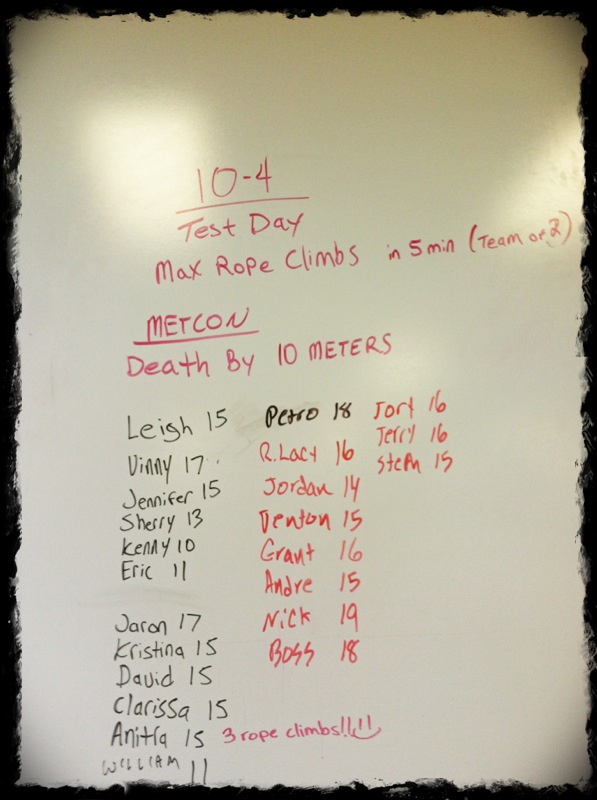 10-4
Test Day
Max Rope Climbs in 5 min (Team of 2)
METCON
Death By 10 METERS
Leigh 15
Vinny 17
Jennifer 15
Sherry 13
Kenny 10
Eric 11
Jaron 17
Kristina 15
David 15
Clarissa 15
Anitra 15 3 rope climbs!!!!!
WILLIAM 11
Petro 18
R.Lacy 16
Jordan 14
Denton 15
Grant 16
Andre 15
Nick 19
Boss 18
Jort 16
Terry 16
Steph 15